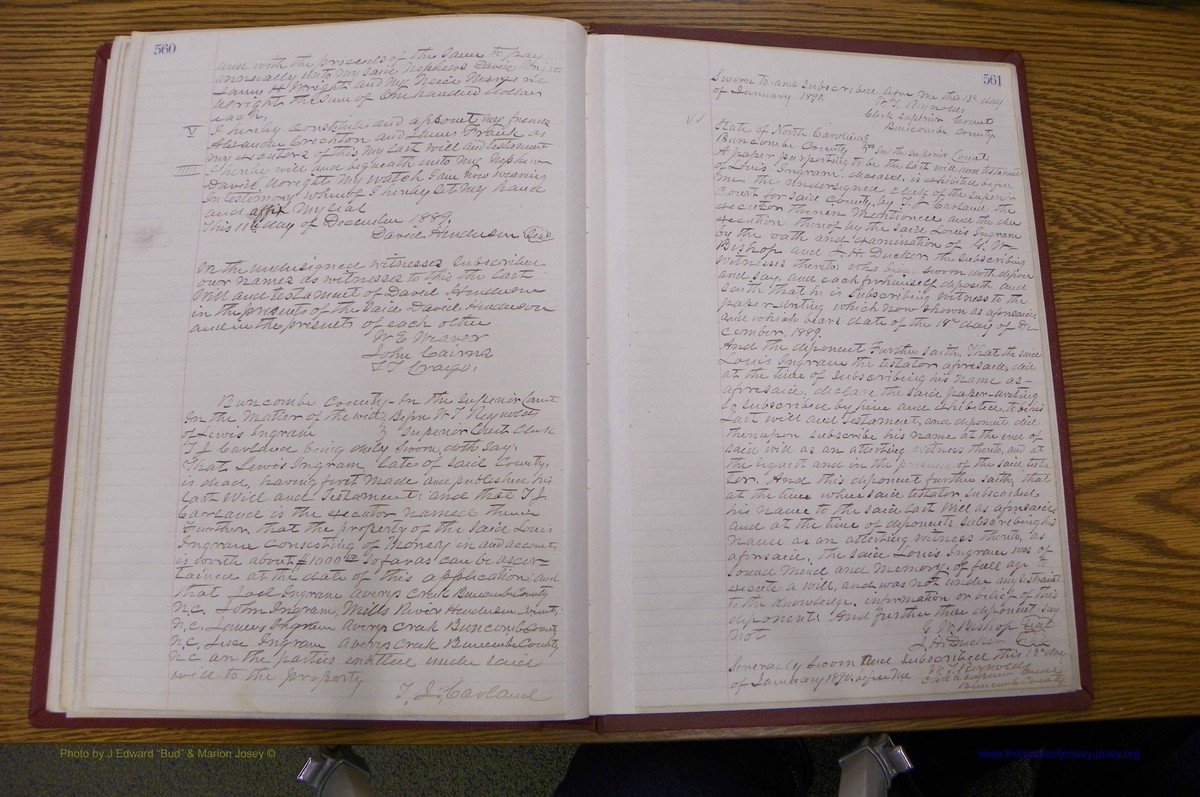 560
and with the proceeds of the same to pay
annually unto my said Nephews David Wright
James H Wright and my Neice Margerie
Wright the sum of One hundred dollar
each,
V I hereby constitute and appoint my friends
Alexander Creighton and James Frank as
my executors of this my last will and testament
IIII I hereby will and bequeath unto my Nephew
David Wright my watch I am now wearing
In testimony whereof I hereby set my hand
and affix my seal
This 11th day of December 1889.
David Henderson Seal
We the undersigned witnesses subscribed
our names as witnesses to this the last
will and testament of David Henderson
in the presents of the said David Henderson
and in the presents of each other
W. E. Weaver
John Cairns
T. T. Craige,
Buncombe County - In the Superior Court
In the Matter of the will Before W T Reynolds
of Lewis Ingram Superior Court Clerk
T J Garland being duly sworn doth say:
That Lewis Ingram, late of said County,
is dead, having first made and published his
last Will and Testament: and that T J
Garland is the executor named therein
Further, that the property of the said Louis
Ingram consisting of Money in and accounts
is worth about $1000.00 so far as can be ascer-
tained at the date of this application, and
that Joel Ingram Averys Creek Buncombe County
N.C. John Ingram, Mills River Henderson County
N.C. James Ingram Averys Creek Buncomb County
N.C. Ingram Averys Creek Buncombe County
N C are the parties entitled under said
will to the property
T. J. Garland
561
Sworn to and subscribed before me this 18th day
of January 1890.
W T Reynolds
Clerk Superior Court
Buncombe County
State of North Carolina
Buncombe County In the Superior Court
A paper purporting to be the last will and testament
of Louis Ingram, deceased, is exhibited before
me, the undersigned Clerk of the Superior
Court for said County, by T. J. Garland the
executor therein mentioned and the due
execution thereof by the said Louis Ingram
by the oath and examination of G. W.
Bishop and J. H. Ducker the subscribing
witnesses thereto who being sworn doth depose
and say, and each for himself deposeth and
saith that he is subscribing witness to the
paper-writing which now shown as aforesaid
and which bears date of the 18th day of De-
cember, 1889.
And the deponent further saith, That the said
Louis Ingram the testator aforesaid, did
at the time of subscribing his name as-
aforesaid, declare the said paper-writing
so subscribed by him and exhibited, to be his
Last will and Testament, and deponent did
thereupon subscribe his name at the end of
said will as an attesting witness thereto, and at
the request and in the presence of the said testa-
tor. And this deponent further saith, that
at the time when said testator subscribed
his name to the said last will as aforesaid
and at the time of deponents subscribing his
name as an attesting witness thereto, as
aforesaid, the said Louis Ingram was of
sound mind and memory, of full age to
execute a will, and was not under any restraint
to the knowledge, information or belief of this
deponents And further these deponents say
not
G. W. Bishop Seal
J. H. Ducker Seal
Severally sworn and subscribed this 18th day
of January 1890. before me W T Reynolds
Clerk Superior Court
Buncombe County
Photo by J Edward "Bud" & Marion Josey ©